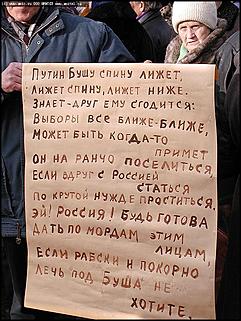 Путин Бушу спину лижет,
лижет спину, лижет ниже.
Знает-друг ему сгодится:
Выборы все ближе-ближе,
может быть когда-то
примет
он на ранчо поселиться,
если вдруг с Россией
статься
по крутой нужде проститься.
Эй! Россия! Будь готова
дать по мордам этим
лицам,
если рабски и покорно
лечь под Буша не
хотите.